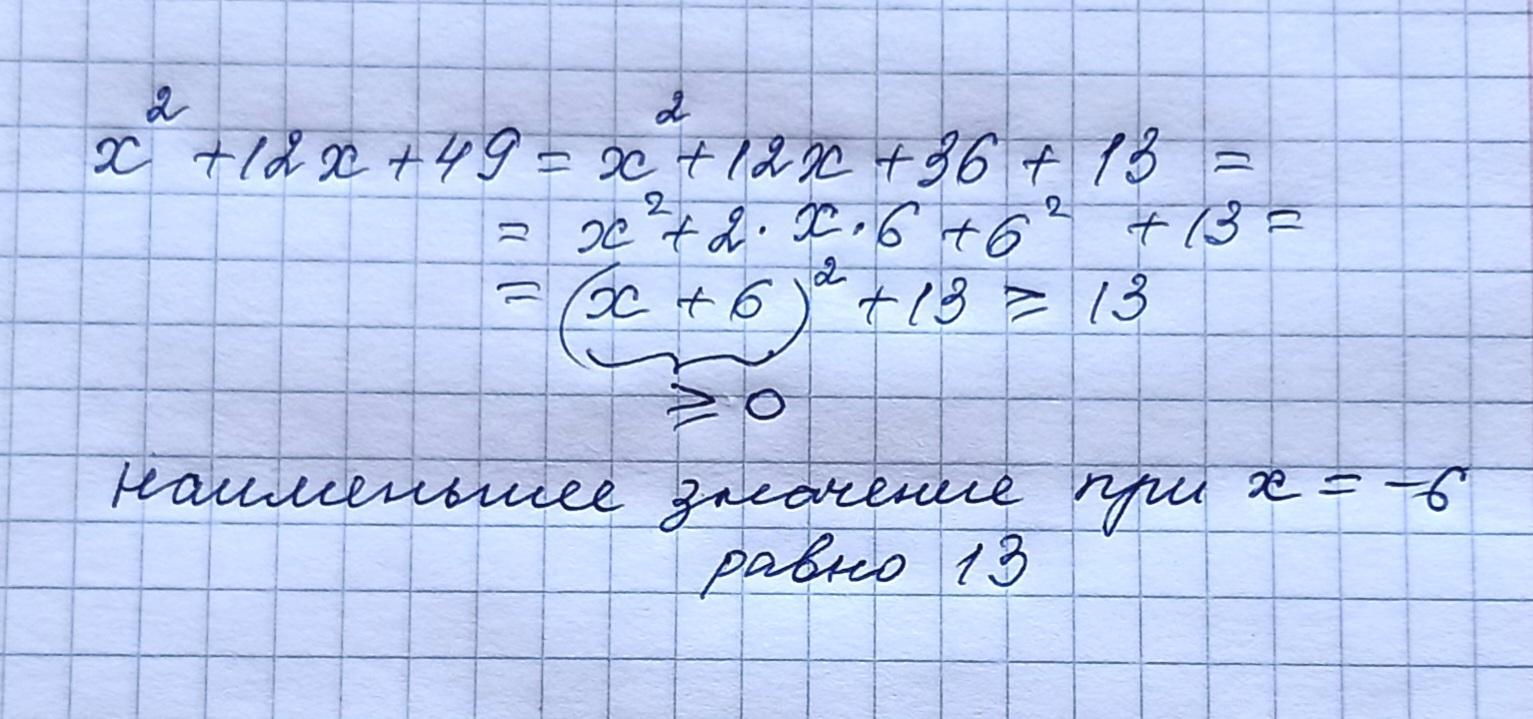 x² + 12x + 49 = x² + 12x + 36 + 13 =
= x² + 2 · x · 6 + 6² + 13 =
= (x + 6)² + 13 ⩾ 13
⩾ 0
наименьшее значение при x = -6
равно 13